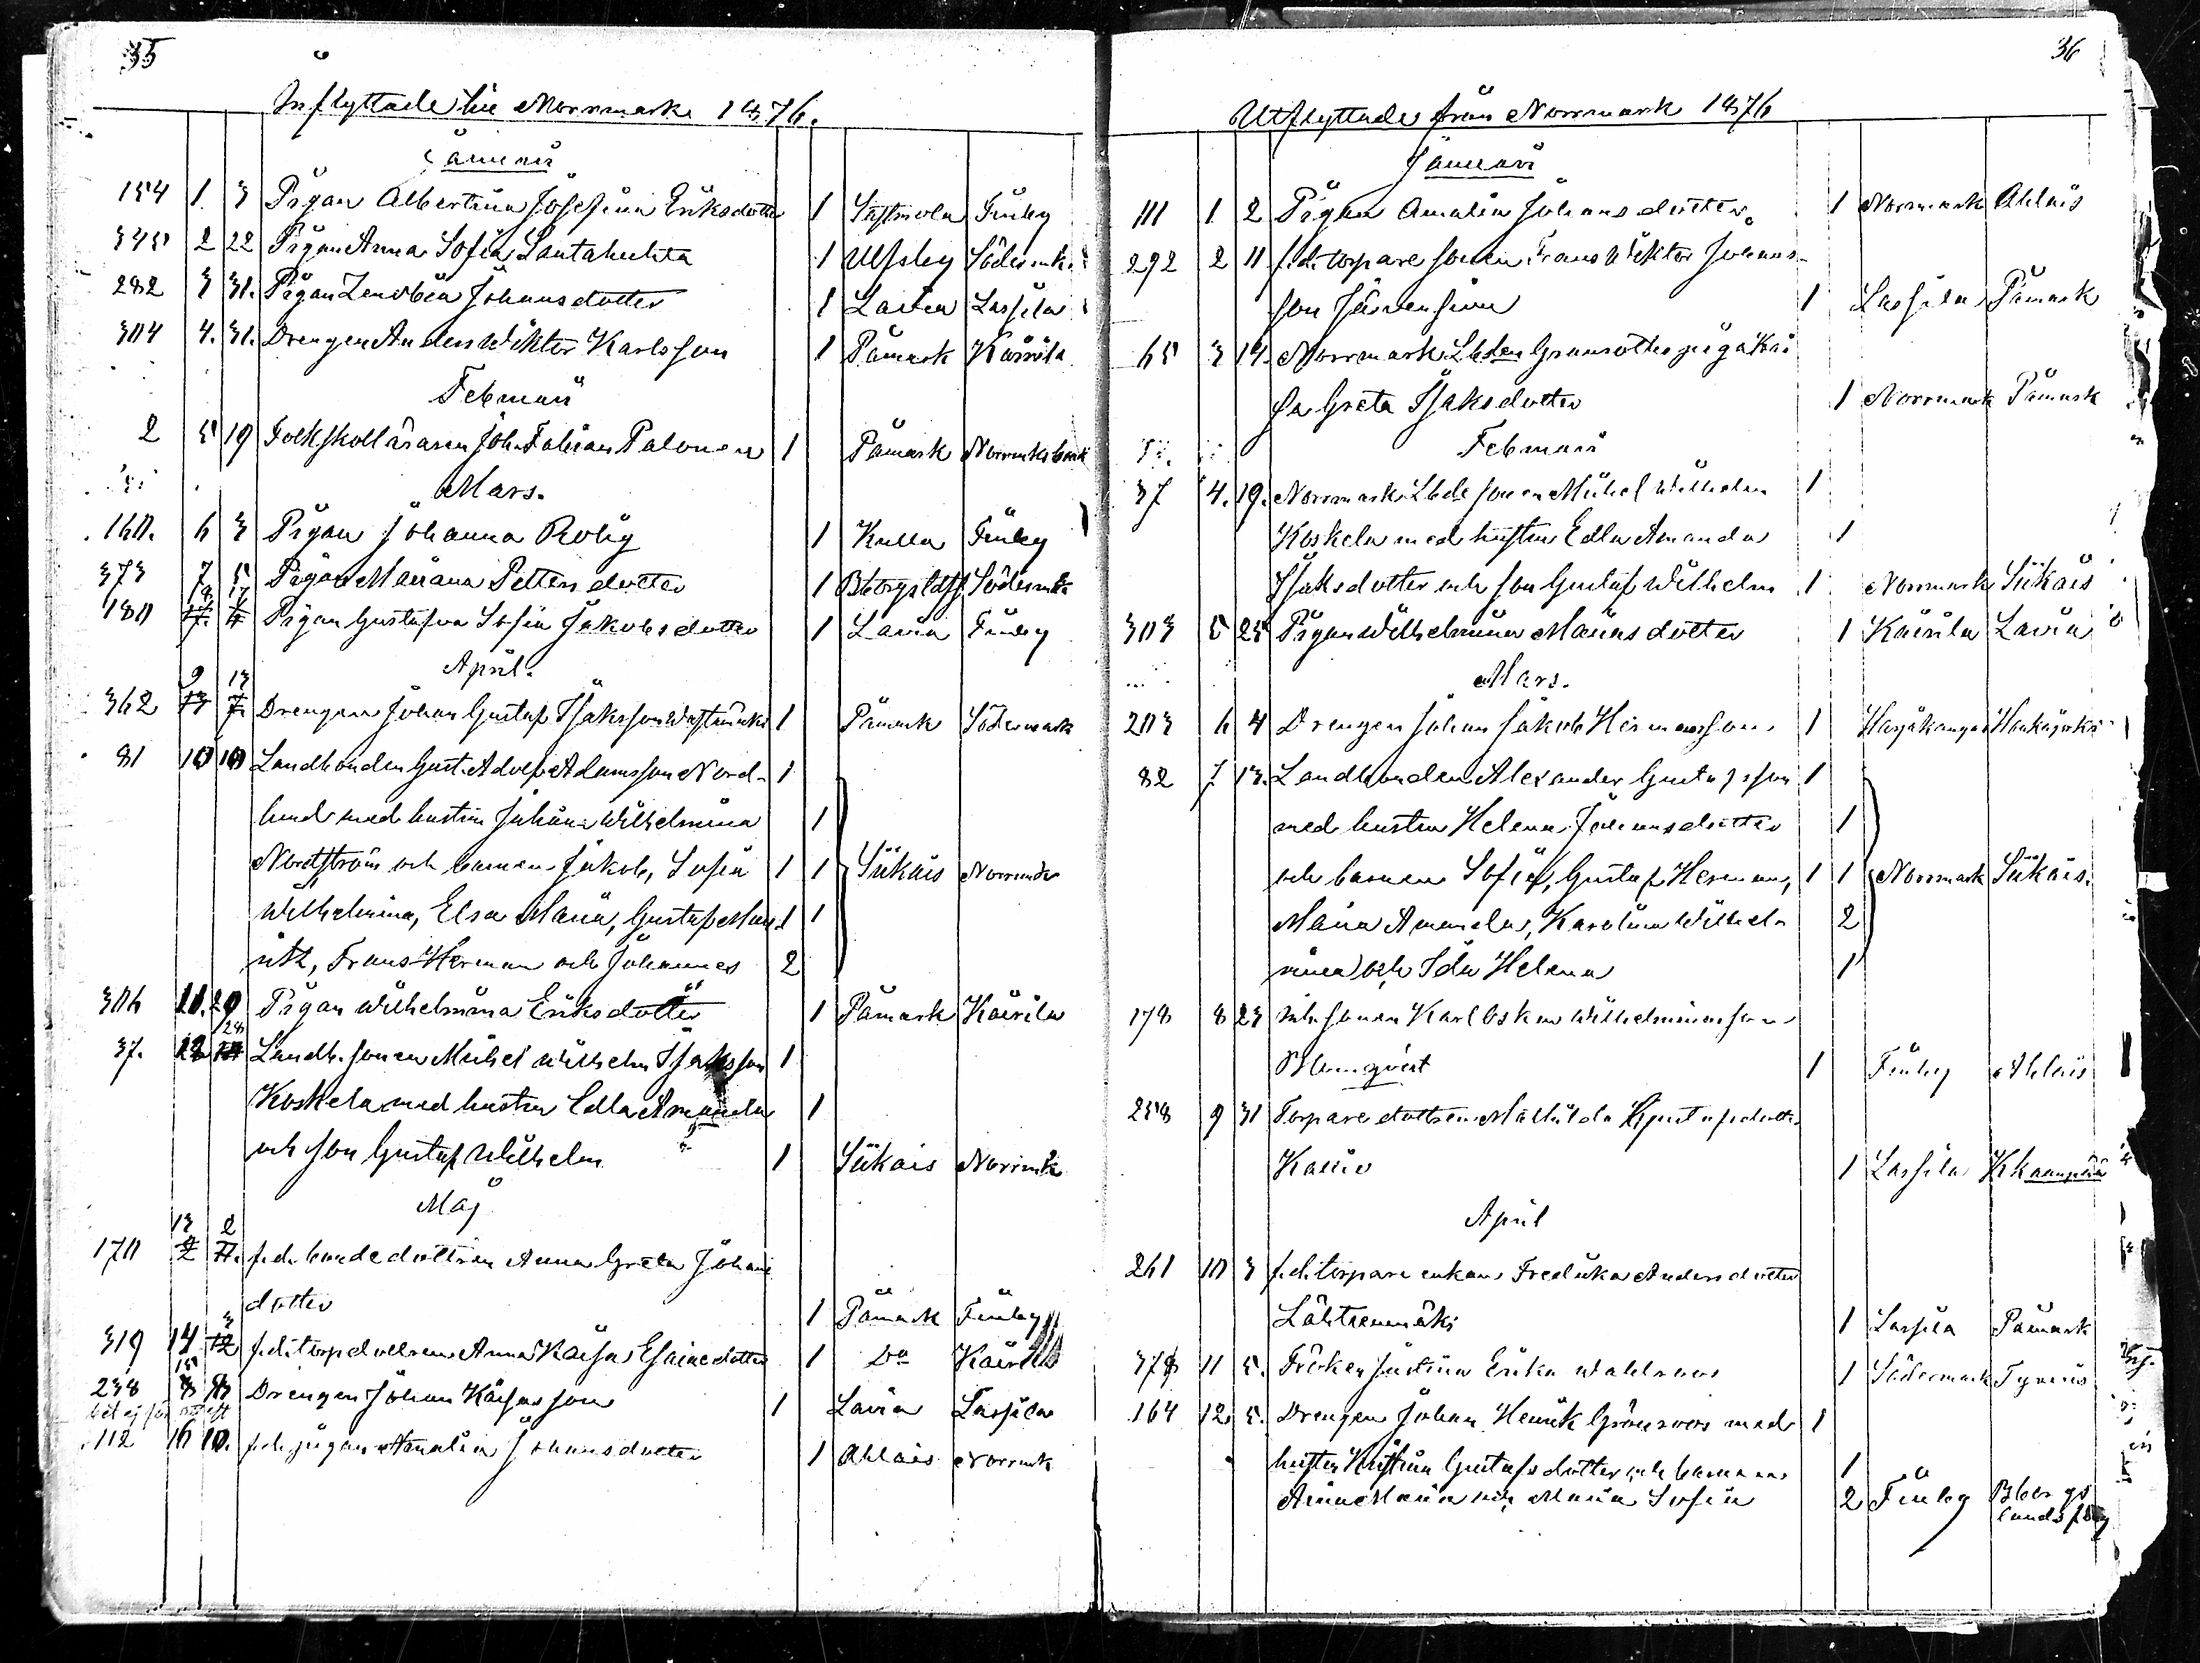 35
Inflyttade till Norrmark 1876.
Januari
154 1. 3 Pigan Albertina Josefina Eriksdotter 1 Sastmola Finby
345 2 22 Pigan Anna Sofia Santahuhta 1 Ulfsby Södermk.
282 3 31. Pigan Zenobia Johansdotter 1 Lavia Lassila
304 4. 31. Drengen Anders Wiktor Karlsson 1 Påmark Kairila
Februari
2 5 19 Folkskolläraren Joh. Fabian Palonen 1 Påmark Norrmks
Mars.
160. 6 3 Pigan Johanna Rolig 1 Kulla Finby
373 7 5 Pigan Mariana Pettersdotter 1 Södermk
180 8 17 Pigan Gustafva Sofia Jakobsdotter 1 Lavia Finby
April.
362 9 13 Drengen Johan Gustaf Isaksson 1 Påmark Södermark
81 10 10 Landbonden Gust. Adolf Adamsson Nord- 1
lund med hustru Johana Wilhelmina 1
Nordström och barnen Jakob, Sofia 1 1 Siikais Norrmk
Wilhelmina, Elsa Maria, Gustaf Mau- 1 1
ritz, Frans Herman och Johannes 2
306 11. 20 Pigan Wilhelmina Eriksdotter 1 Påmark Kairila
37. 12 28 Landb. sonen Mikel Wilhelm Isaksson 1
Koskela med hustru Edla Amanda 1
och son Gustaf Wilhelm 1 Siikais Norrmk
Maj
170 13 2 f.d. bondedottren Anna Greta Johans
dotter 1 Påmark Finby
319 14 3 f.d. torpdottren Anna Kaisa Esaiaedotter 1 Do Kairila
238 15 8 Drengen Johan Kaisasson 1 Lavia Lassila
112 16 10. f.d. pigan Amalia Johansdotter 1 Ahlais Norrmk
36
Utflyttade från Norrmark 1876
Januari
111 1 2 Pigan Amalia Johansdotter. 1 Norrmark Ahlais
292 2 11 f.d. torpare sonen Frans Wiktor Johans-
son Järvensivu 1 Lassila Påmark
65 3 14. Norrmark Lbden Granroths piga Kai
sa Greta Isaksdotter 1 Norrmark Påmark
Februari
37 4. 19. Norrmark Lbde sonen Mikel Wilhelm 1
Koskela med hustru Edla Amanda 1
Isaksdotter och son Gustaf Wilhelm 1 Norrmark Siikais
303 5 25 Pigan Wilhelmina Mariasdotter 1 Kairila Lavia
Mars.
203 6 4 Drengen Johan Jakob Hermansson 1 Harjakangas Honkajoki
82 7. 13. Landbonden Alexander Gustafsson 1
med hustru Helena Johansdotter 1
och barnen Sofia, Gustaf Herman, 1 1 Norrmark Siikais.
Maria Amanda, Karolina Wilhel- 2
mina och Ida Helena 1
178 8 23 sonen Karl Oskar Wilhelminasson
Blomqvist 1 Finby Ahlais
258 9 31 Torpare dottren Mathilda Gustafsdotter
1 Lassila Kkaanpää
April
261 10 3 f.d. torpare enkan Fredrika Andersdotter
Lähteenmäki 1 Lassila Påmark
378 11 5. Fröken Justina Erika Wahlroos 1 Södermark Tyrvis
164 12. 5. Drengen Johan Henrik Grönroos med 1
hustru Kristina Gustafsdotter och barnen 1
Anna Maria och Maria Sofia 2 Finby Bbergs
landsfbg